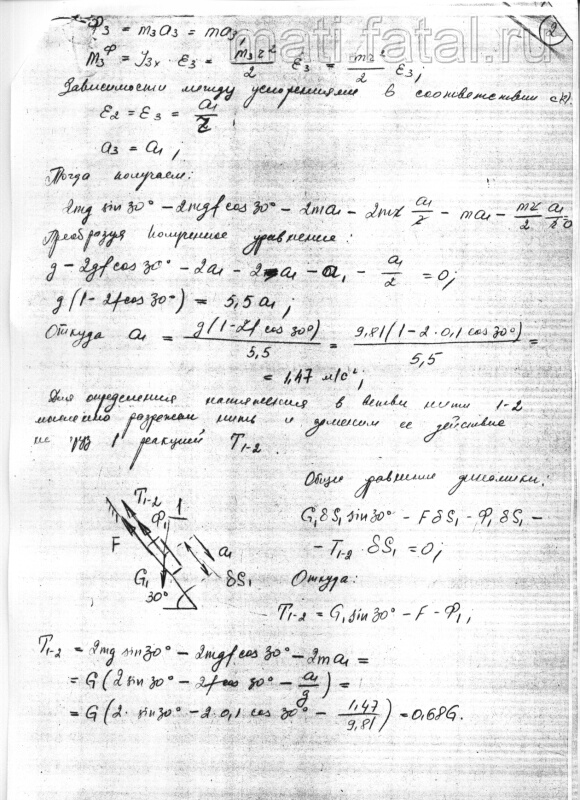 mati.fatal.ru
2
Φ₃ = m₃a₃ = ma₃
M₃^Φ = J₃ₓ · ε₃ = m₃r²/2 ε₃ = mr²/2 ε₃;
Зависимости между ускорениями в соответствии с
ε₂ = ε₃ = a₁/r;
a₃ = a₁;
Тогда получаем:
2mg sin30° − 2mgf cos30° − 2ma₁ − 2mr a₁/r − ma₁ − mr/2 a₁/r = 0
Преобразуя полученное уравнение:
g − 2gf cos30° − 2a₁ − 2a₁ − a₁ − a₁/2 = 0;
g(1 − 2f cos30°) = 5,5a₁;
Откуда a₁ = g(1−2f cos30°)/5,5 = 9,81(1−2·0,1 cos30°)/5,5 =
= 1,47 м/с²;
Для определения натяжения в ветви нити 1-2
мысленно разрежем нить и заменим ее действие
на груз 1 реакцией T₁₋₂.
Общее уравнение динамики:
T₁₋₂ 1
Φ₁
F
a₁
G₁ δS₁
30°
G₁δS₁sin30° − FδS₁ − Φ₁δS₁ −
− T₁₋₂ · δS₁ = 0;
Откуда:
T₁₋₂ = G₁sin30° − F − Φ₁,
T₁₋₂ = 2mg sin30° − 2mgf cos30° − 2ma₁ =
= G(2sin30° − 2f cos30° − a₁/g) =
= G(2· sin30° − 2·0,1 cos30° − 1,47/9,81) = 0,68G.